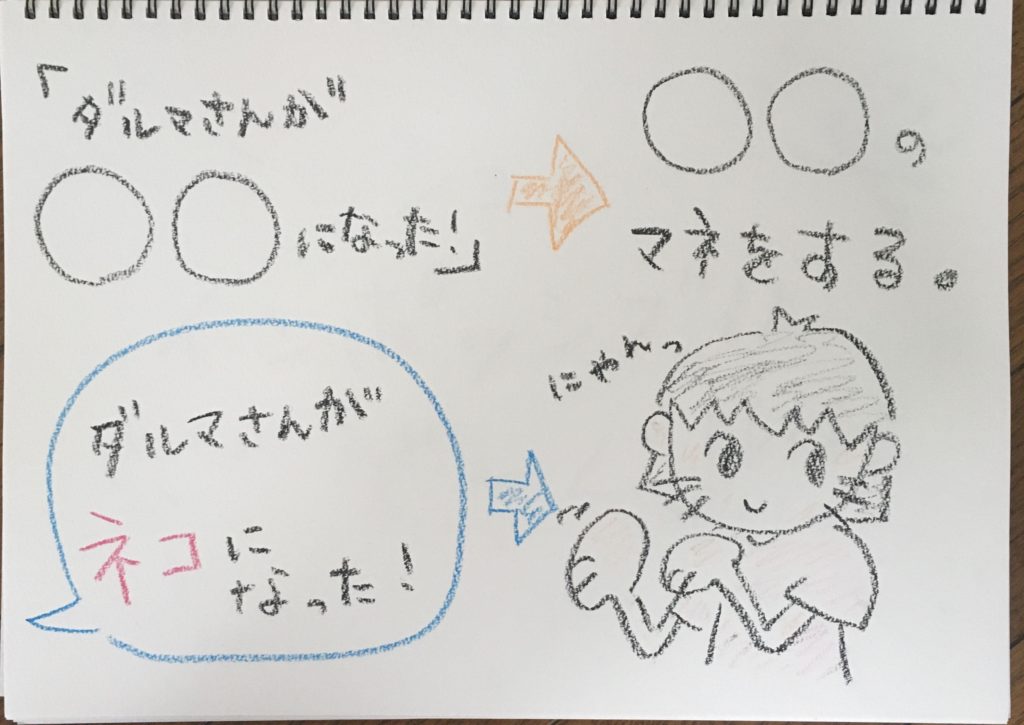 「ダルマさんが
○○になった!」
○○の
マネをする。
ダルマさんが
ネコに
なった!
にゃんっ